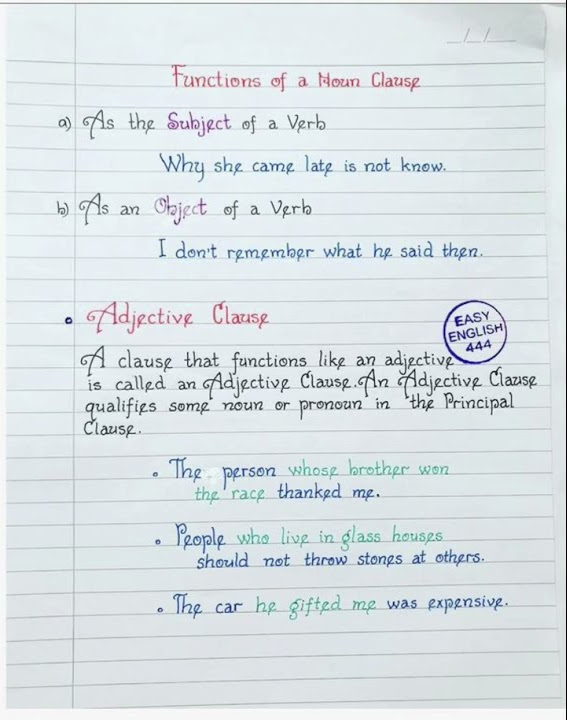 Functions of a Noun Clause
a) As the Subject of a Verb
Why she came late is not know.
b) As an Object of a Verb
I don't remember what he said then.
Adjective Clause
EASY
ENGLISH
444
A clause that functions like an adjective
is called an Adjective Clause. An Adjective Clause
qualifies some noun or pronoun in the Principal
Clause.
• The person whose brother won
the race thanked me.
• People who live in glass houses
should not throw stones at others.
• The car he gifted me was expensive.